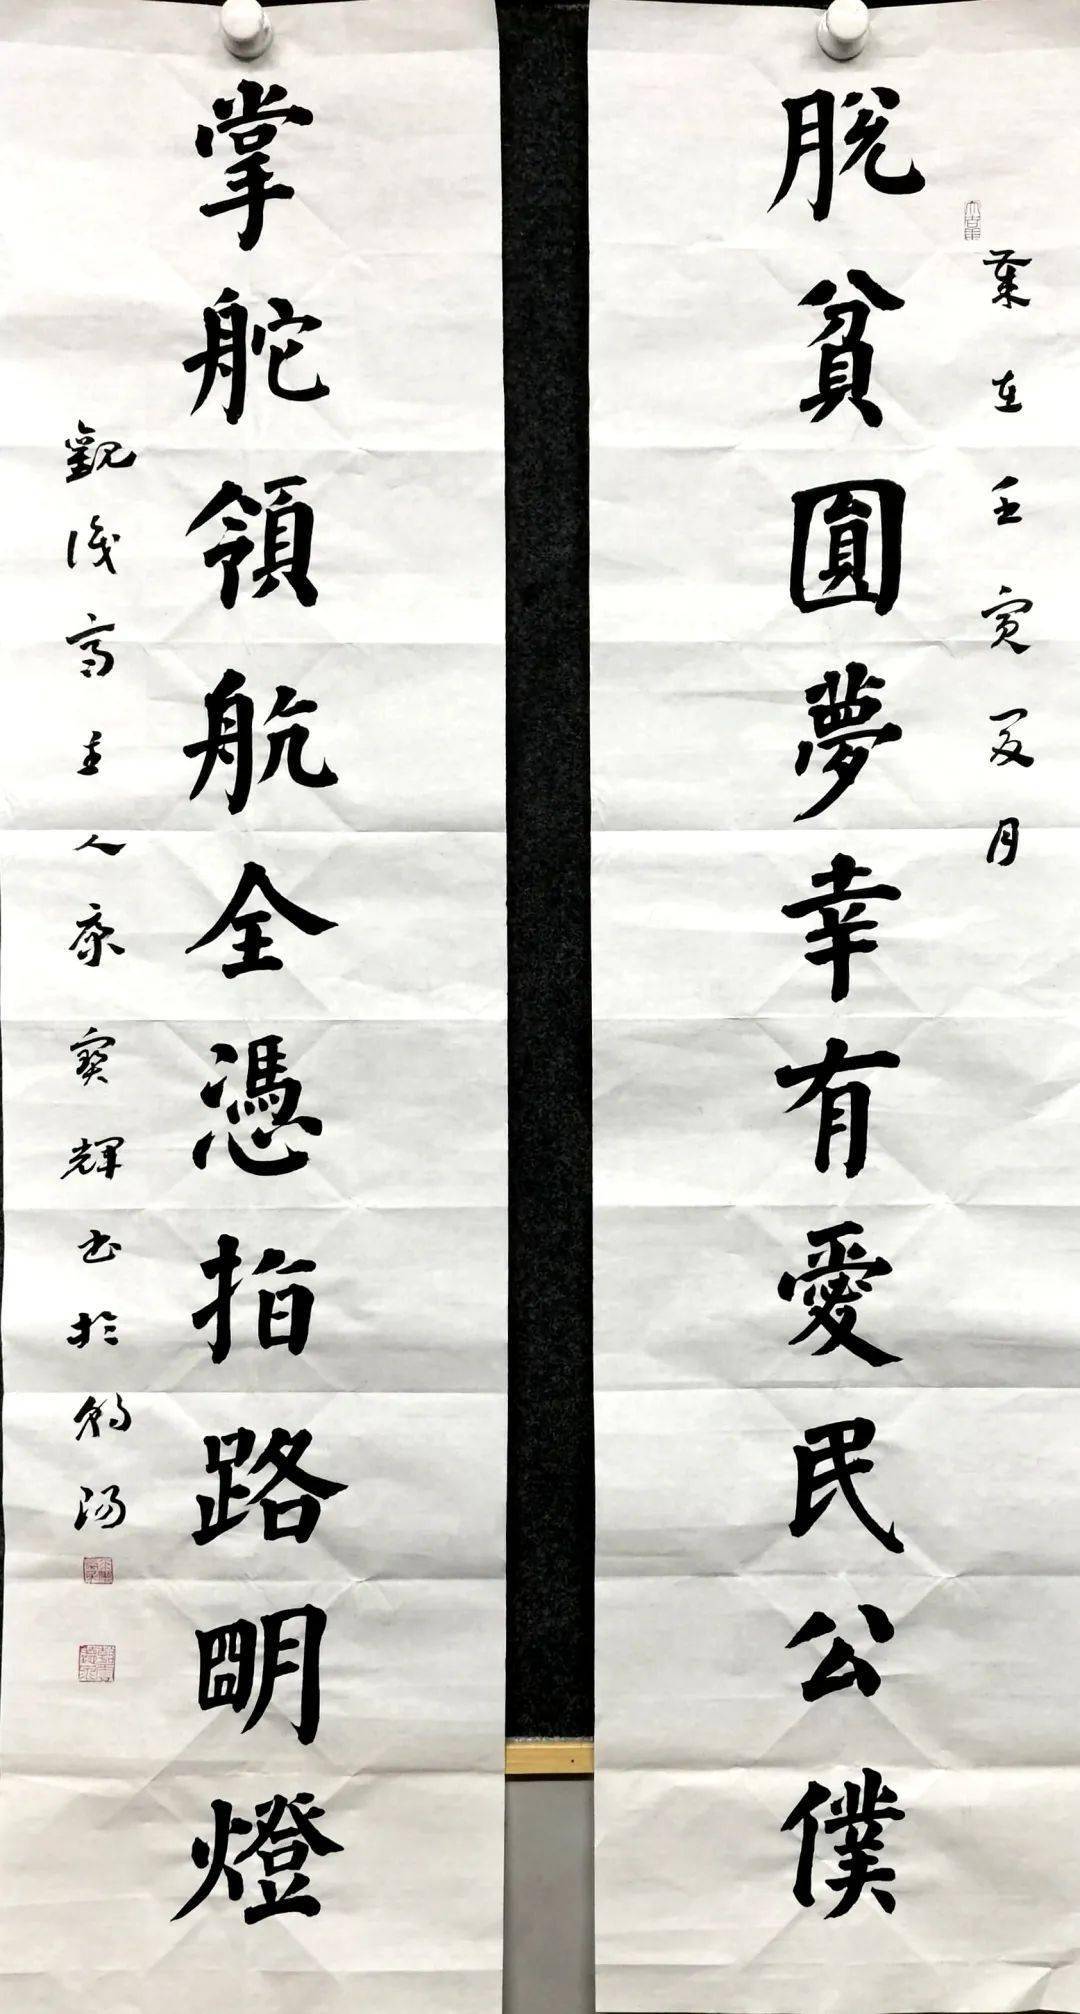 歲在壬寅夏月
脫貧圓夢幸有愛民公僕
掌舵領航全憑指路明燈
觀主人康寶輝书於